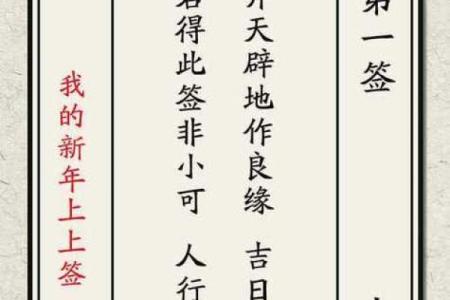 第一签
开天辟地作良缘 吉日
若得此签非小可 人行
我的新年上上签